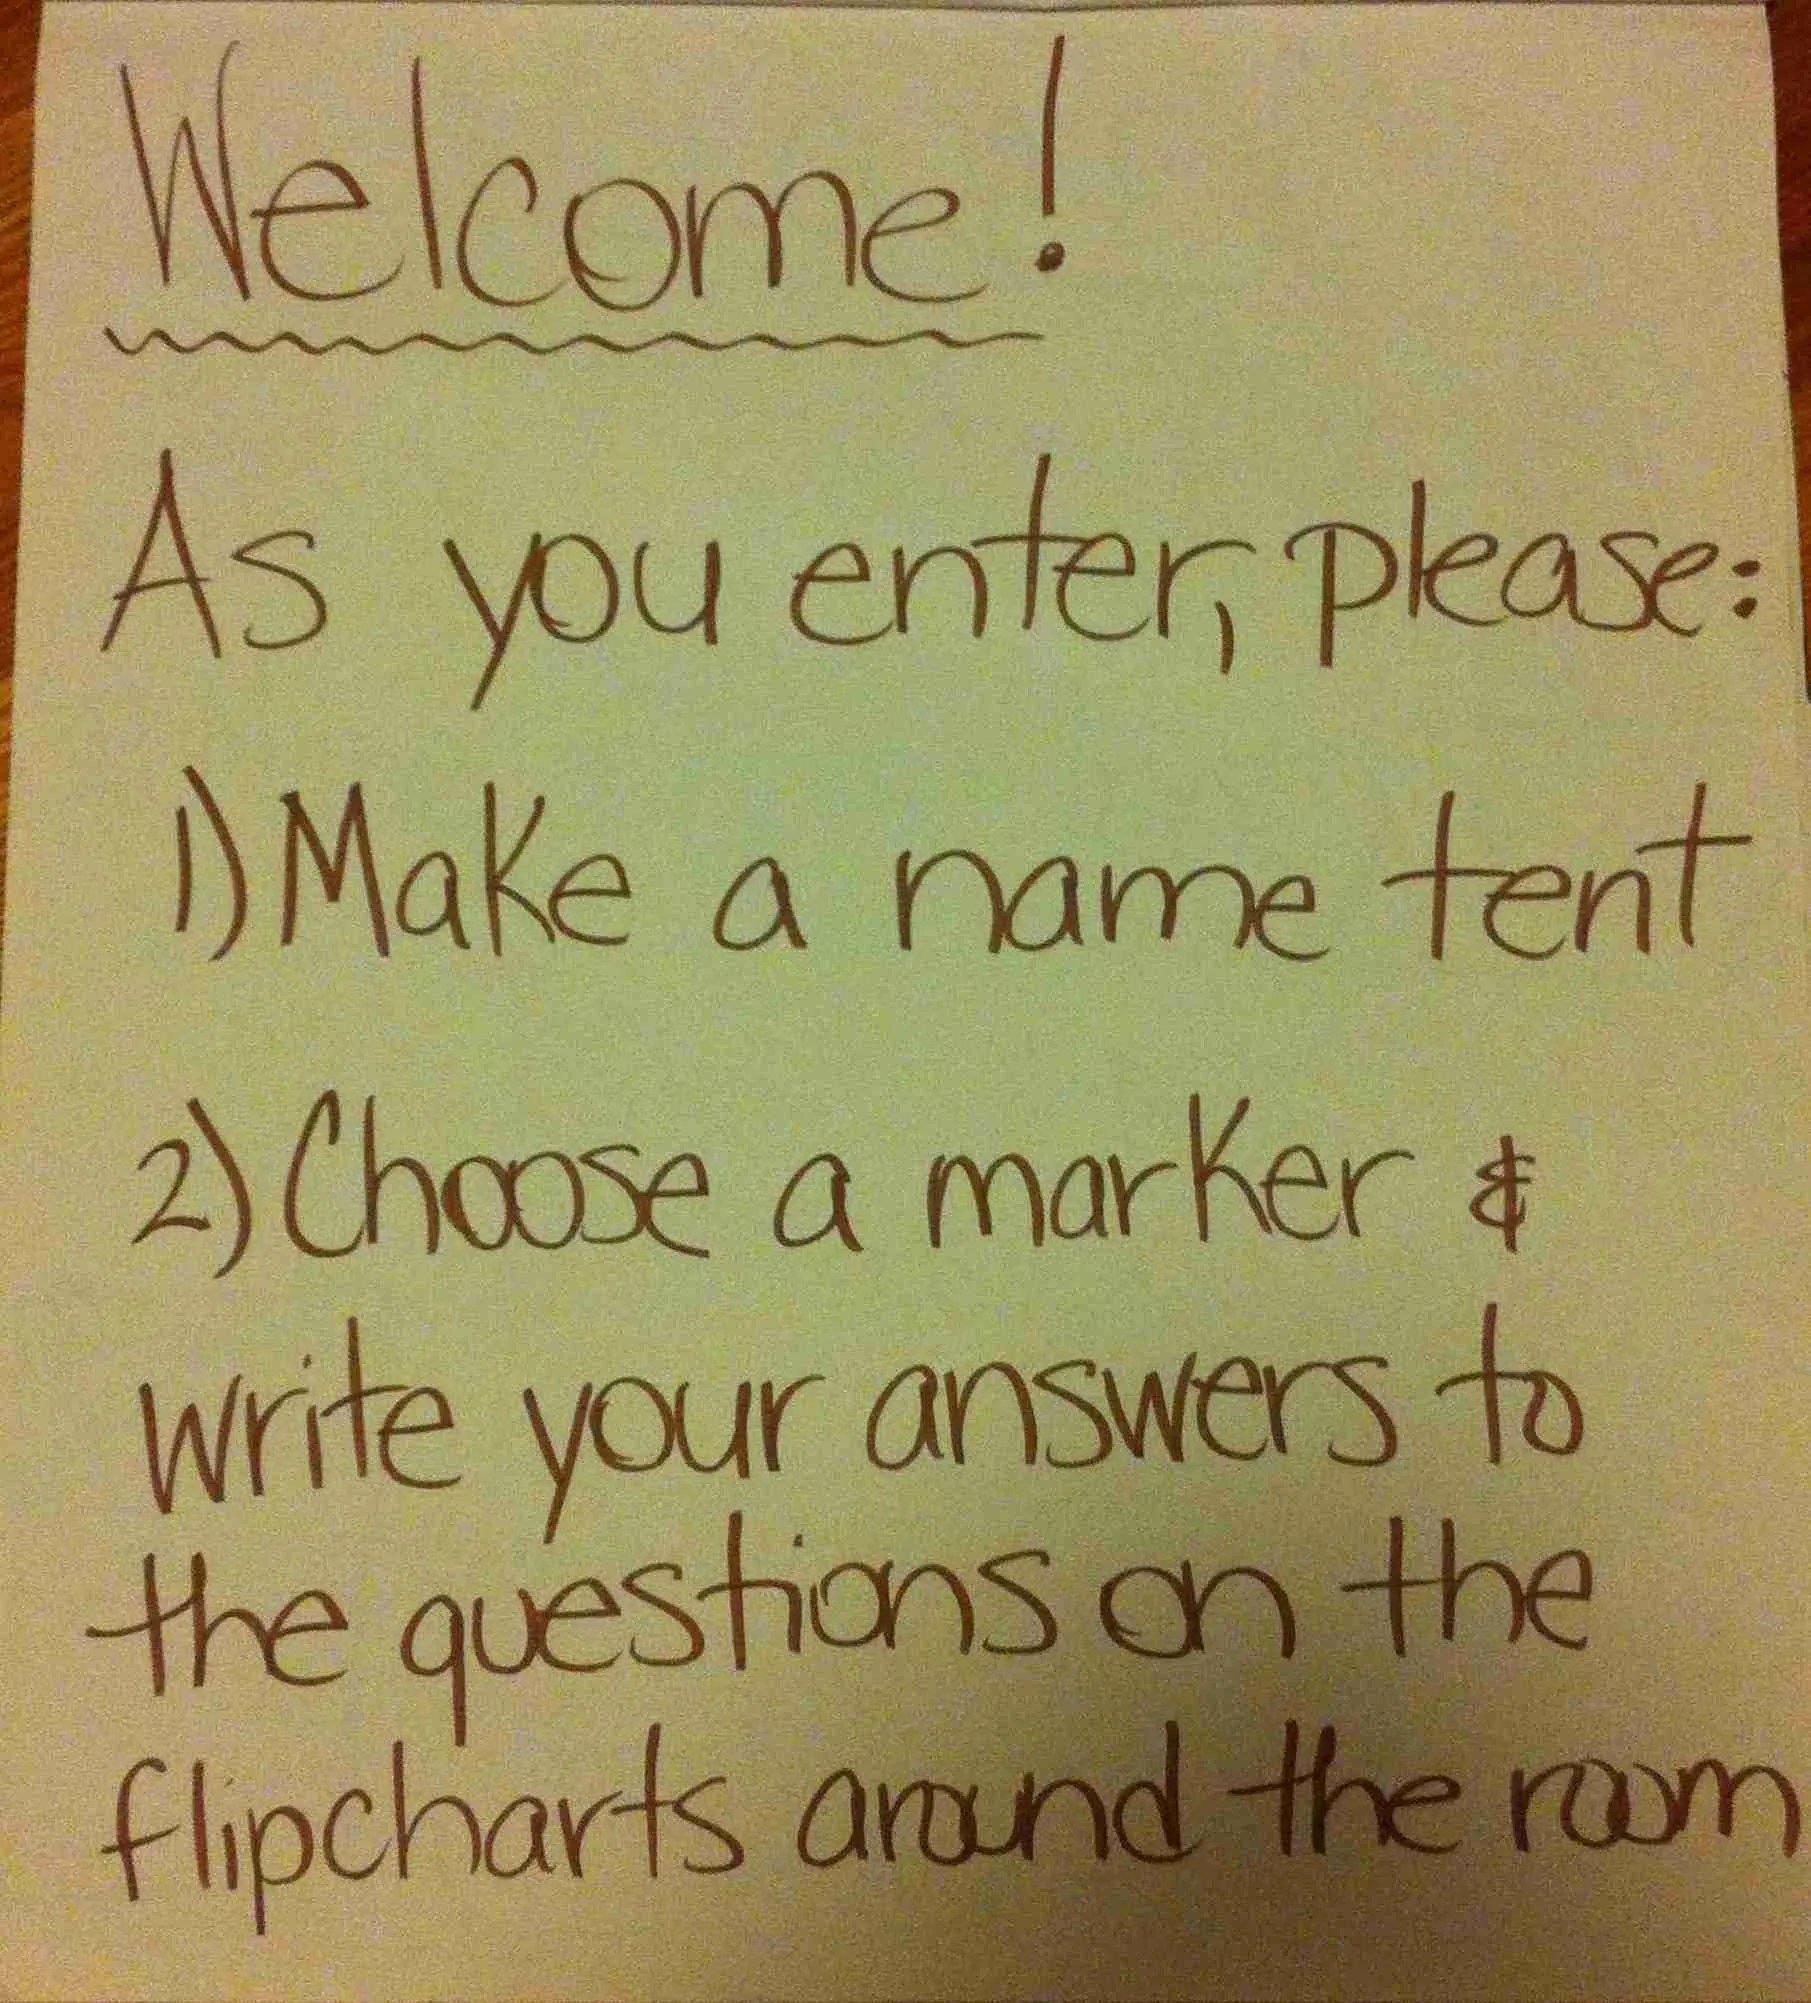 Welcome!
As you enter, please:
1) Make a name tent
2) Choose a marker &
write your answers to
the questions on the
flipcharts around the room